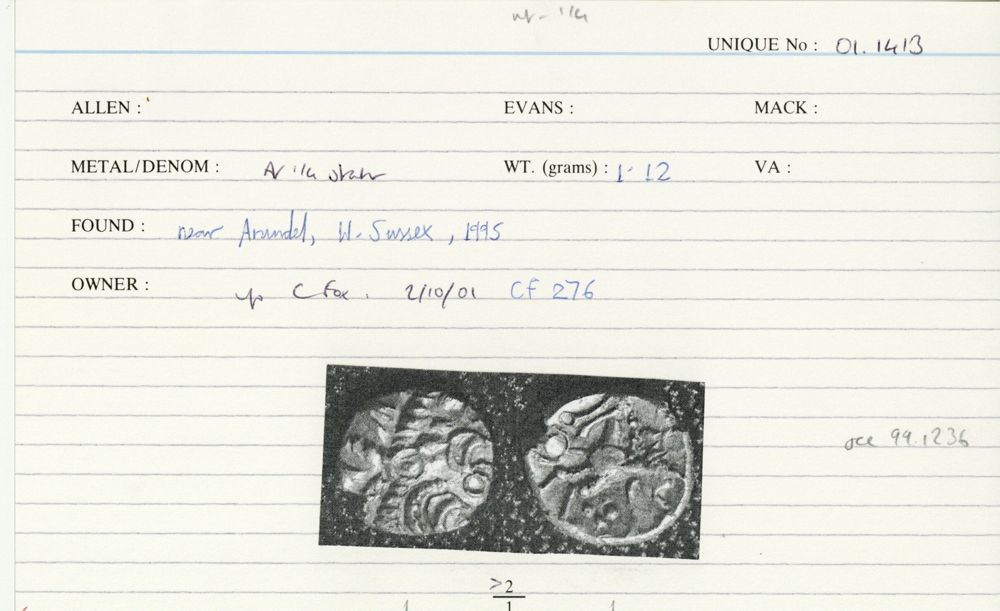 UNIQUE No : 01.1413
ALLEN : EVANS : MACK :
METAL/DENOM : AV 1/4 stater WT. (grams) : 1.12 VA :
FOUND : near Arundel, W. Sussex, 1995
OWNER : C Fox. 2/10/01 CF 276
see 99.1236
>2
1